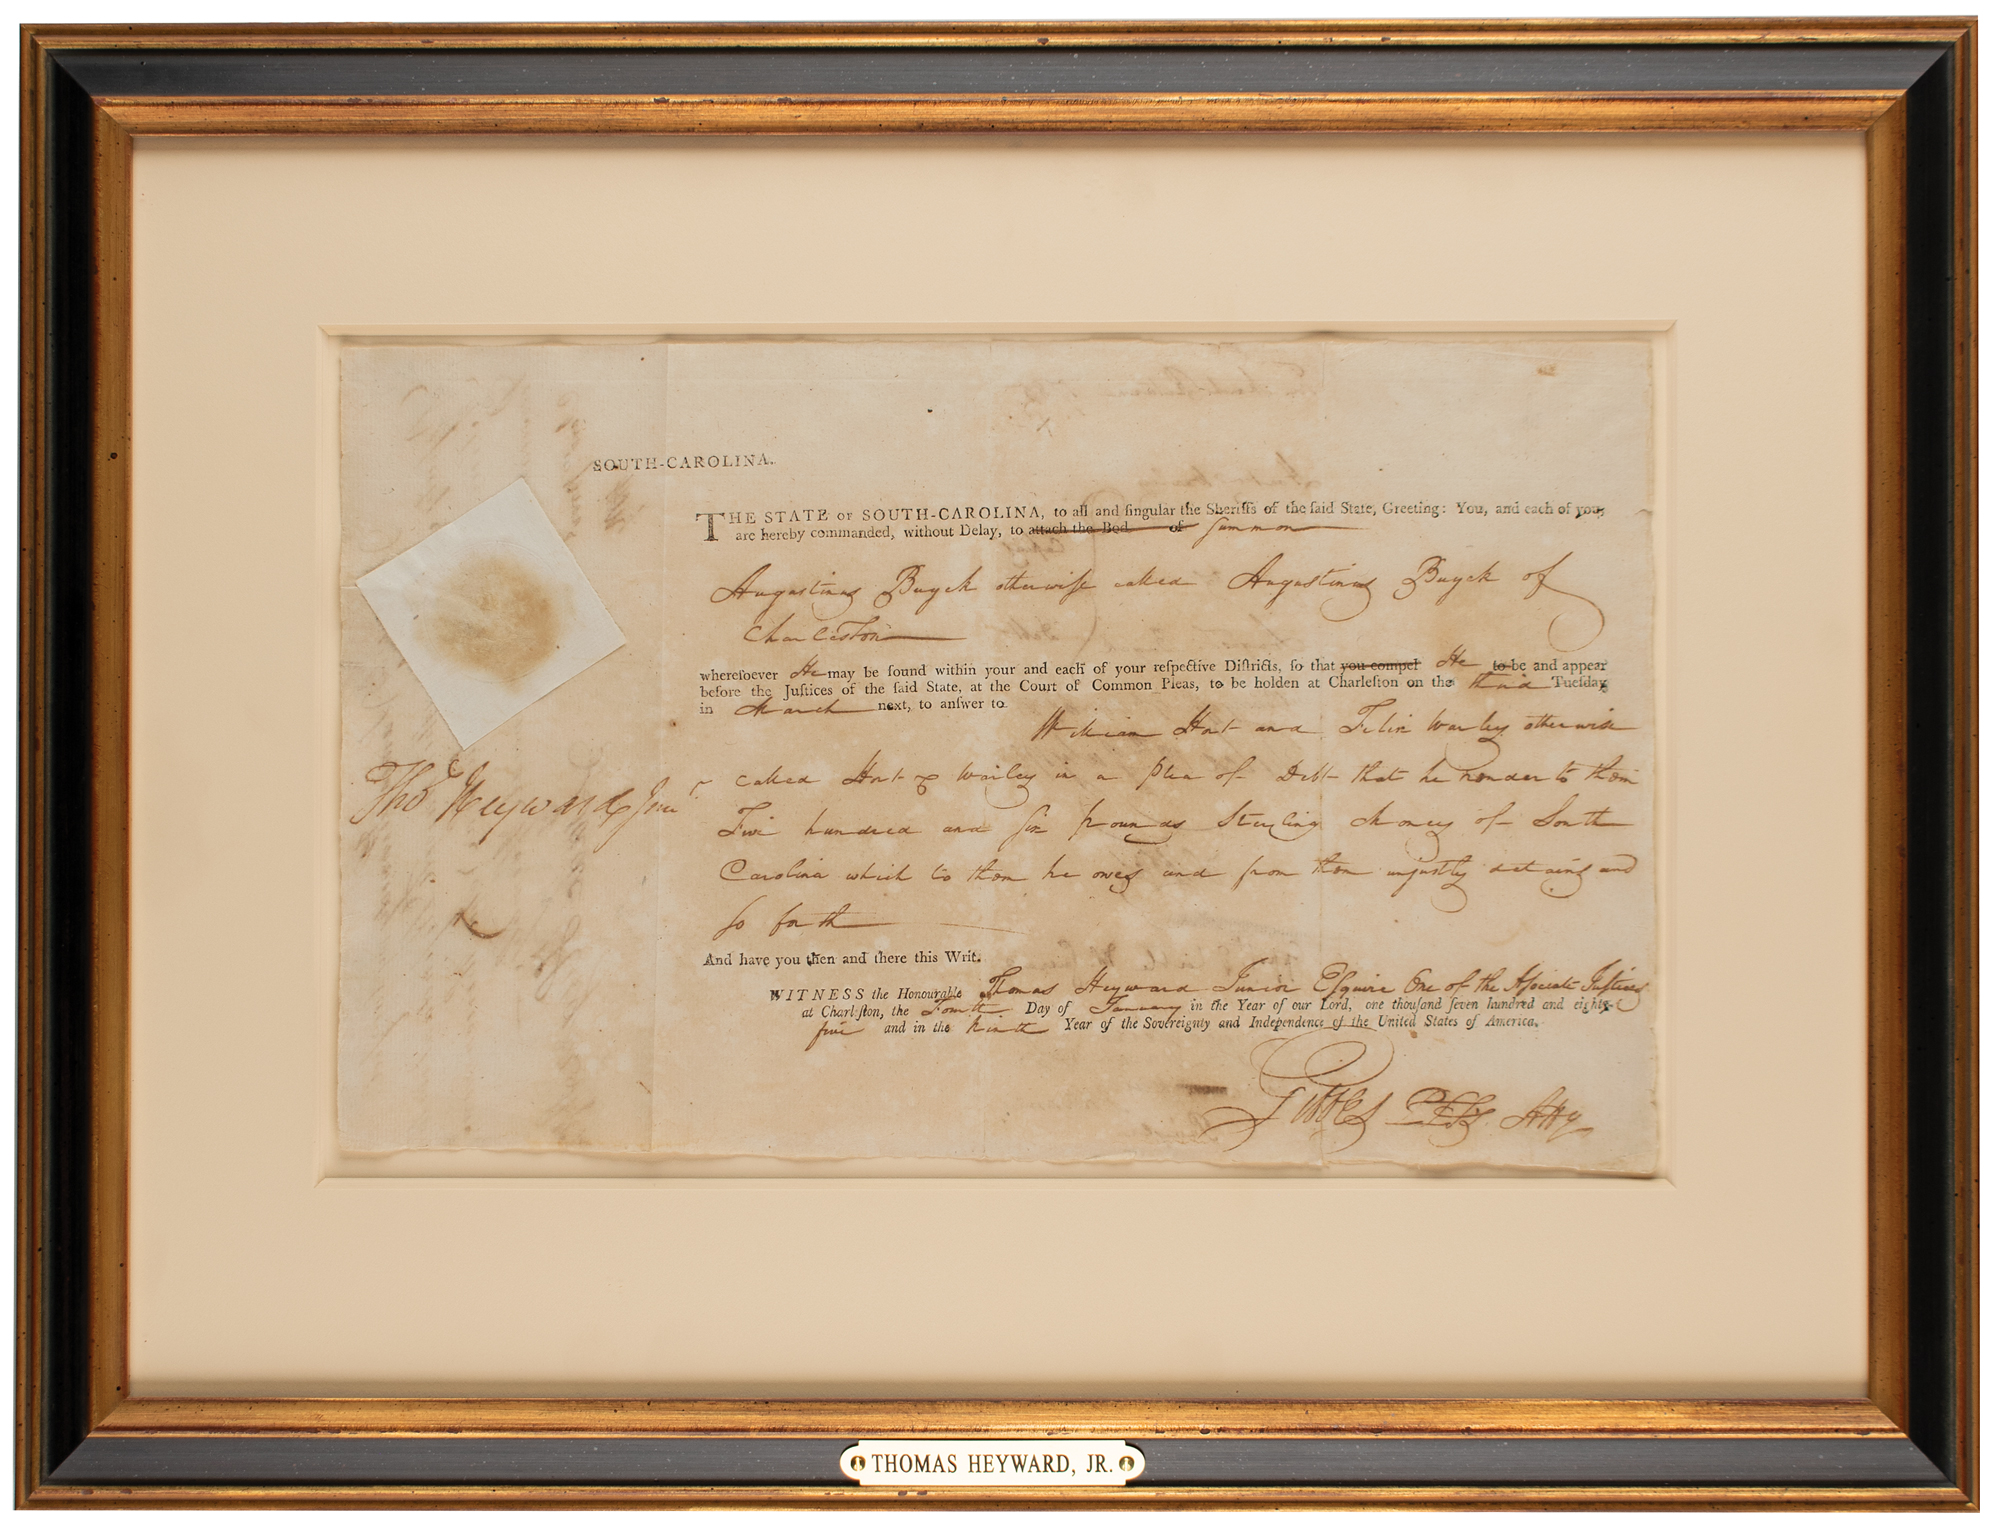 SOUTH-CAROLINA.
THE STATE OF SOUTH-CAROLINA, to all and ſingular the Sheriffs of the ſaid State, Greeting: You, and each of you,
are hereby commanded, without Delay, to attach the Bod of Summon
Augustinus Buyck otherwiſe called Augustinus Buyck of
Charleston
whereſoever He may be found within your and each of your reſpective Diſtricts, ſo that you compel He to be and appear
before the Juſtices of the ſaid State, at the Court of Common Pleas, to be holden at Charleſton on the third Tueſday
in March next, to anſwer to
William Hort and Felix Warley otherwise
called Hort & Warley in a plea of Debt that he render to them
Five hundred and six pounds Sterling Money of South
Carolina which to them he owes and from them unjustly detains and
so forth
Thos. Heyward Junr
And have you then and there this Writ.
WITNESS the Honourable Thomas Heyward Junior Eſquire One of the Aſsociate Juſtices
at Charleſton, the Fourth Day of January in the Year of our Lord, one thouſand ſeven hundred and eighty
five and in the Ninth Year of the Sovereignty and Independence of the United States of America.
Gibbes Atty
THOMAS HEYWARD, JR.